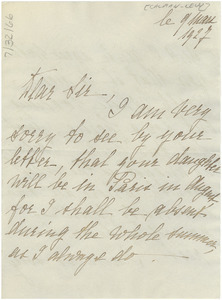 le 9 Mai
1927
7/32/66
Dear Sir,
I am very
sorry to see by your
letter, that your daughter
will be in Paris in August
for I shall be absent
during the whole summer,
as I always do —